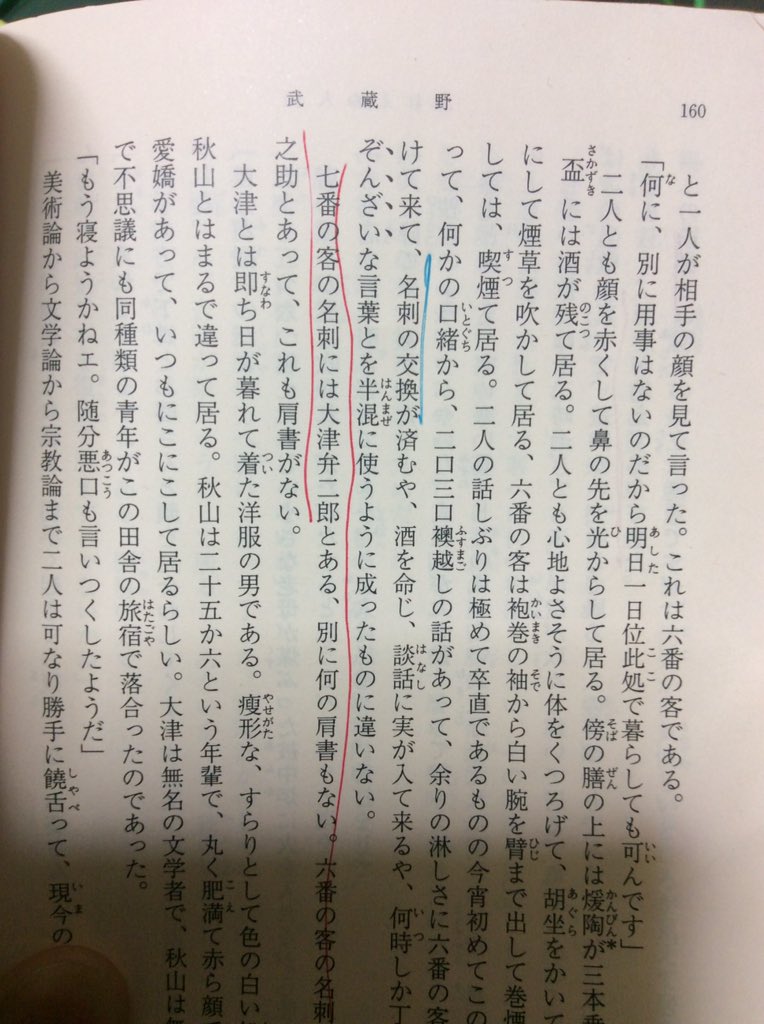 武蔵野
160
と一人が相手の顔を見て言った。これは六番の客である。
「何に、別に用事はないのだから明日一日位此処で暮らしても可んです」
二人とも顔を赤くして鼻の先を光からして居る。傍の膳の上には煖陶*が三本乗
盃には酒が残て居る。二人とも心地よさそうに体をくつろげて、胡坐をかいて
にして煙草を吹かして居る、六番の客は袍巻の袖から白い腕を臂まで出して巻煙
しては、喫煙て居る。二人の話しぶりは極めて卒直であるものの今宵初めてこの
って、何かの口緒から、二口三口襖越しの話があって、余りの淋しさに六番の客
けて来て、名刺の交換が済むや、酒を命じ、談話に実が入て来るや、何時しか丁
ぞんざいな言葉とを半混に使うように成ったものに違いない。
七番の客の名刺には大津弁二郎とある、別に何の肩書もない。六番の客の名刺
之助とあって、これも肩書がない。
大津とは即ち日が暮れて着た洋服の男である。瘦形な、すらりとして色の白い
秋山とはまるで違って居る。秋山は二十五か六という年輩で、丸く肥満て赤ら顔で
愛嬌があって、いつもにこにこして居るらしい。大津は無名の文学者で、秋山は無
で不思議にも同種類の青年がこの田舎の旅宿で落合ったのであった。
「もう寝ようかねエ。随分悪口も言いつくしたようだ」
美術論から文学論から宗教論まで二人は可なり勝手に饒舌って、現今の